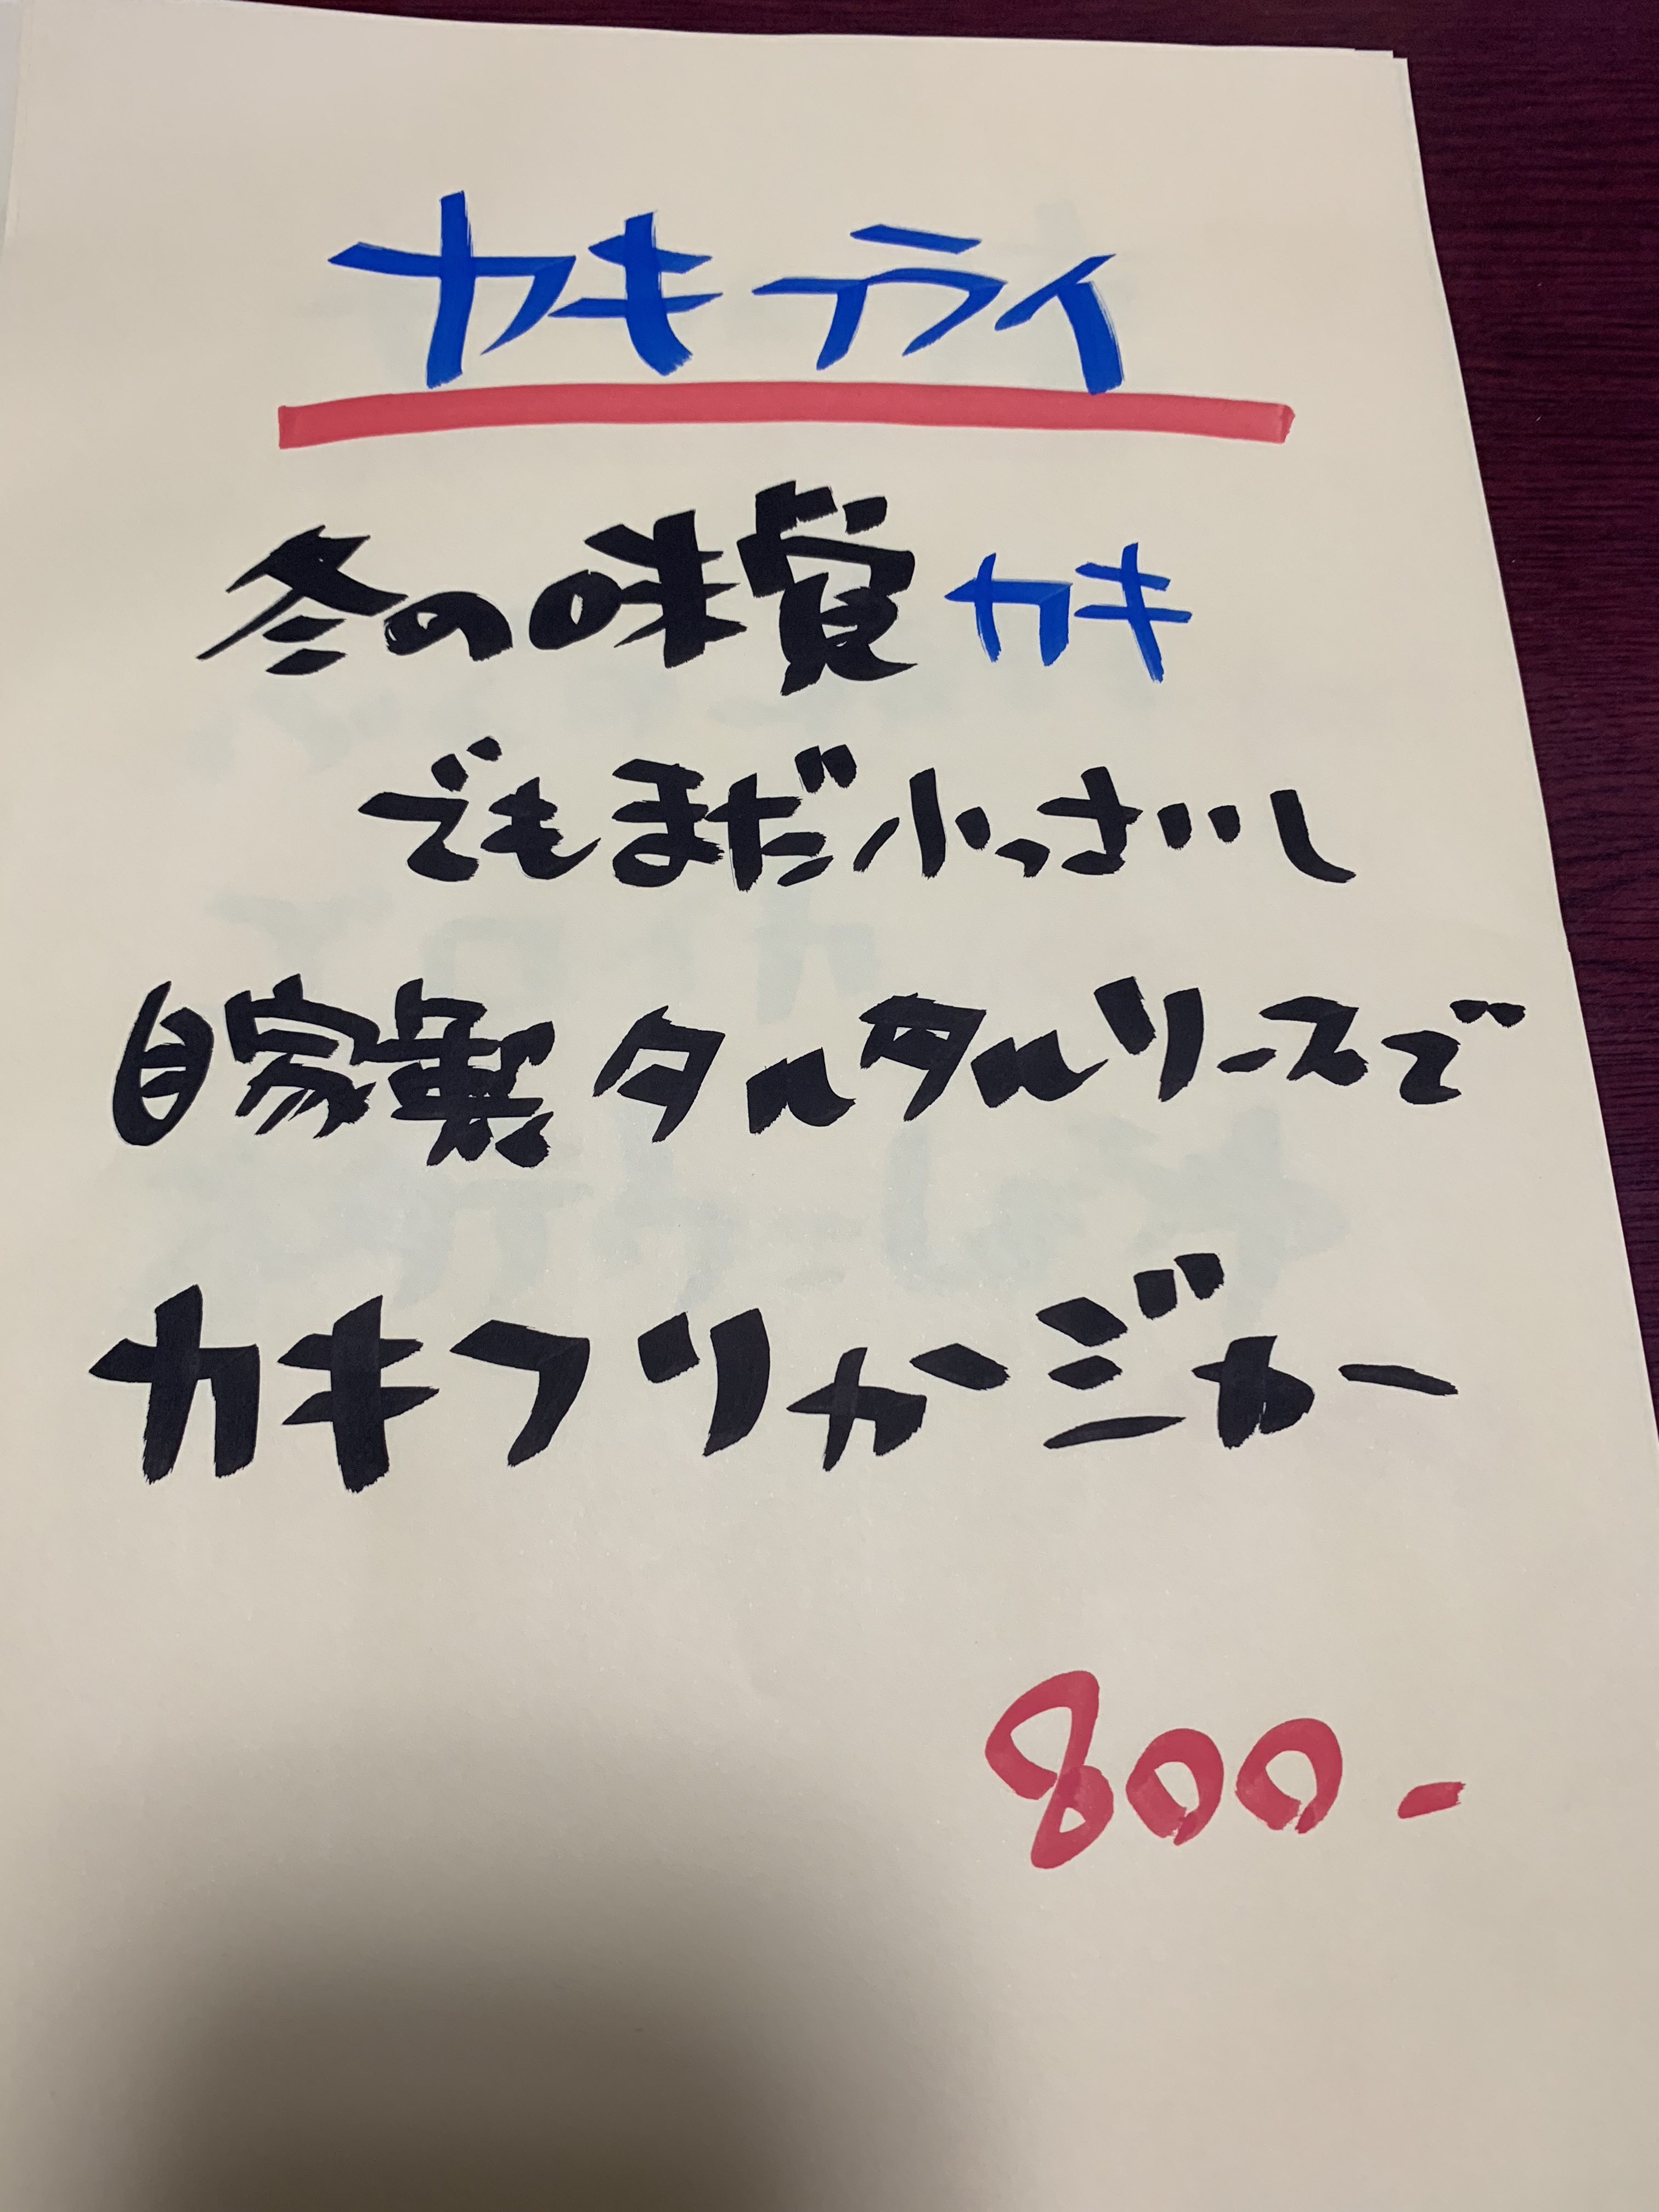 カキフライ
冬の味覚カキ
でもまだ小っさいし
自家製タルタルソースで
カキフリャージャー
800-